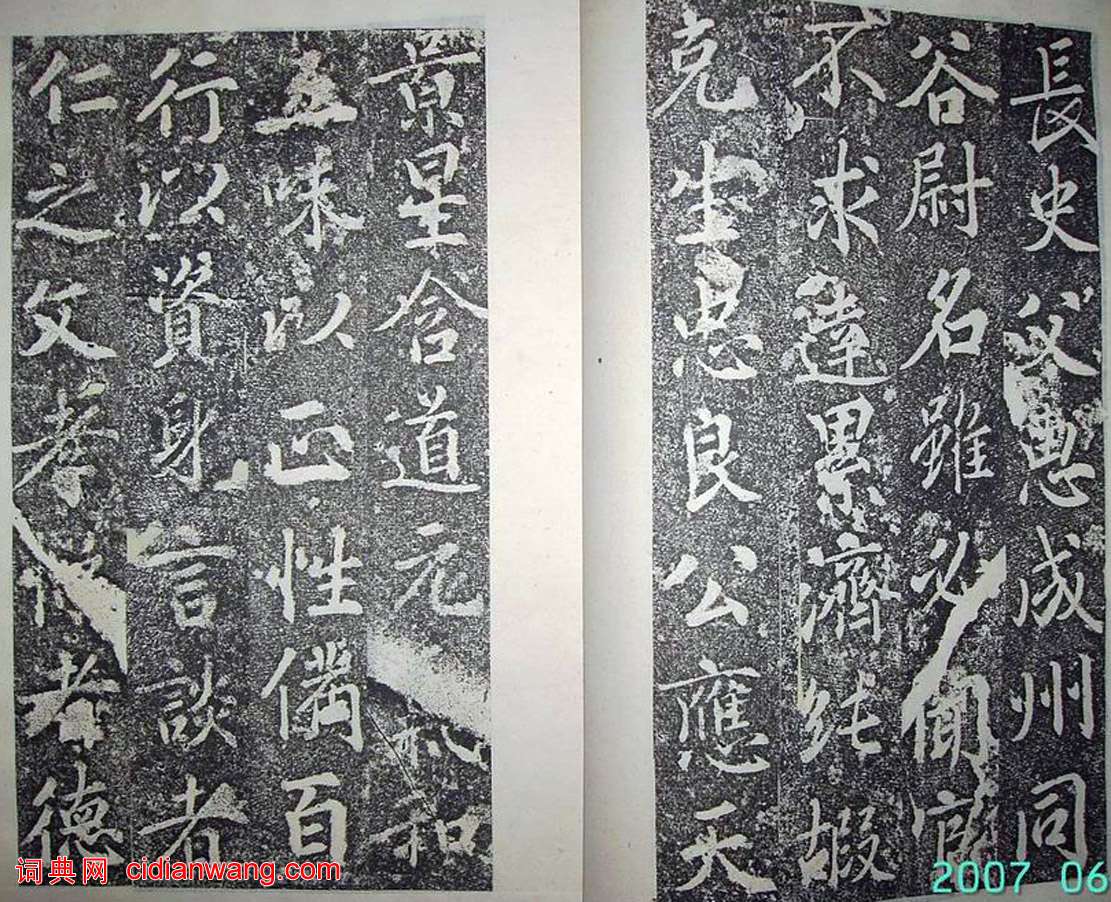 長史父思成州同
谷尉名雖必聞官
不求達累濟純嘏
克生忠良公應天
景星含道元和
五味以正性備百
行以資身言談者
仁之文孝悌者德
词典网 cidianwang.com
2007 06